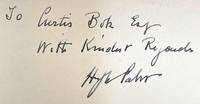 To Curtis Bok Esq
With Kindest Regards